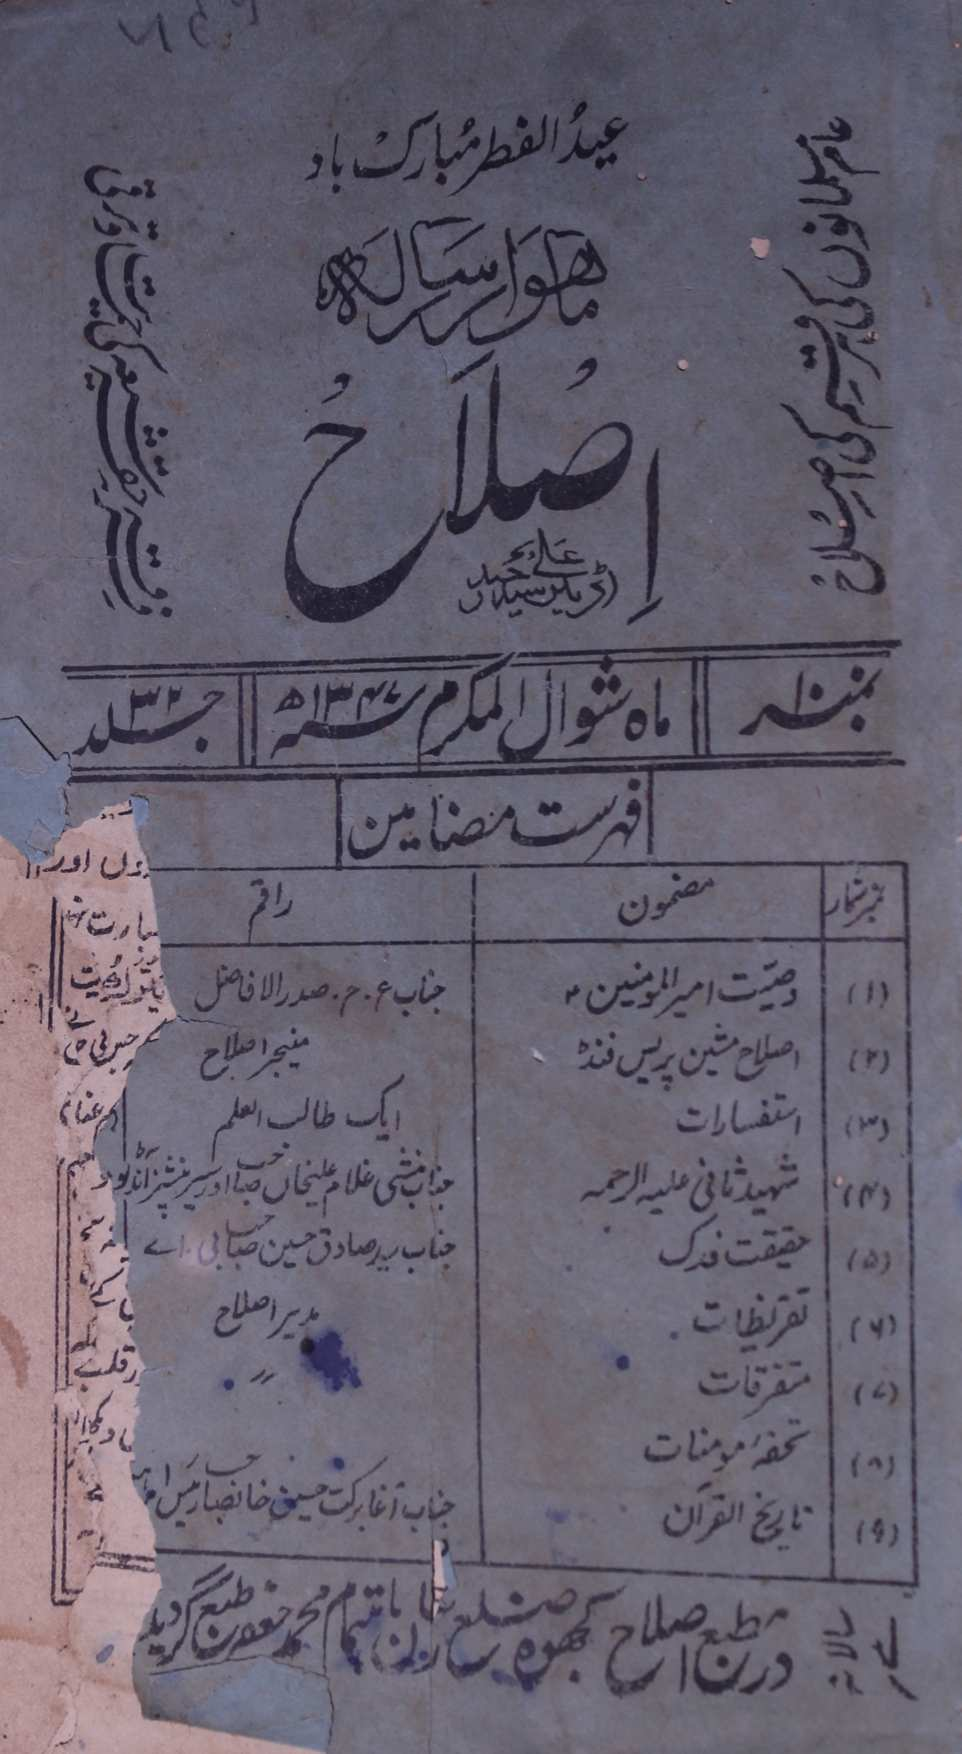 عید الفطر مبارک باد
عام مسلمانوں کی ہر قسم کی اصلاح
ماہوار رسالہ
اصلاح
اڈیٹر سید علی حیدر
نمبر ۱۰
ماہ شوال المکرم سنہ ۱۳۴۷ھ
جلد ۳۲
فہرست مضامین
نمبر شمار مضمون راقم
(۱) وصیت امیر المومنین ؑ جناب ع۔م۔ صدر الافاضل
(۲) اصلاح مشین پریس فنڈ منیجر اصلاح
(۳) استفسارات ایک طالب العلم
(۴) شہید ثانی علیہ الرحمہ جناب منشی غلام علیخاں صاحب اورسیر پنشنر
(۵) حقیقت فدک جناب سید صادق حسین صاحب بی۔اے
(۶) تقریظات مدیر اصلاح
(۷) متفرقات 〃
(۸) تحفۂ مومنات
(۹) تاریخ القرآن جناب آغا برکت حسین خانصاحب رئیس
در مطبع اصلاح کھجوہ ضلع سارن باہتمام محمد جعفر طبع گردید
وں اور
قلب